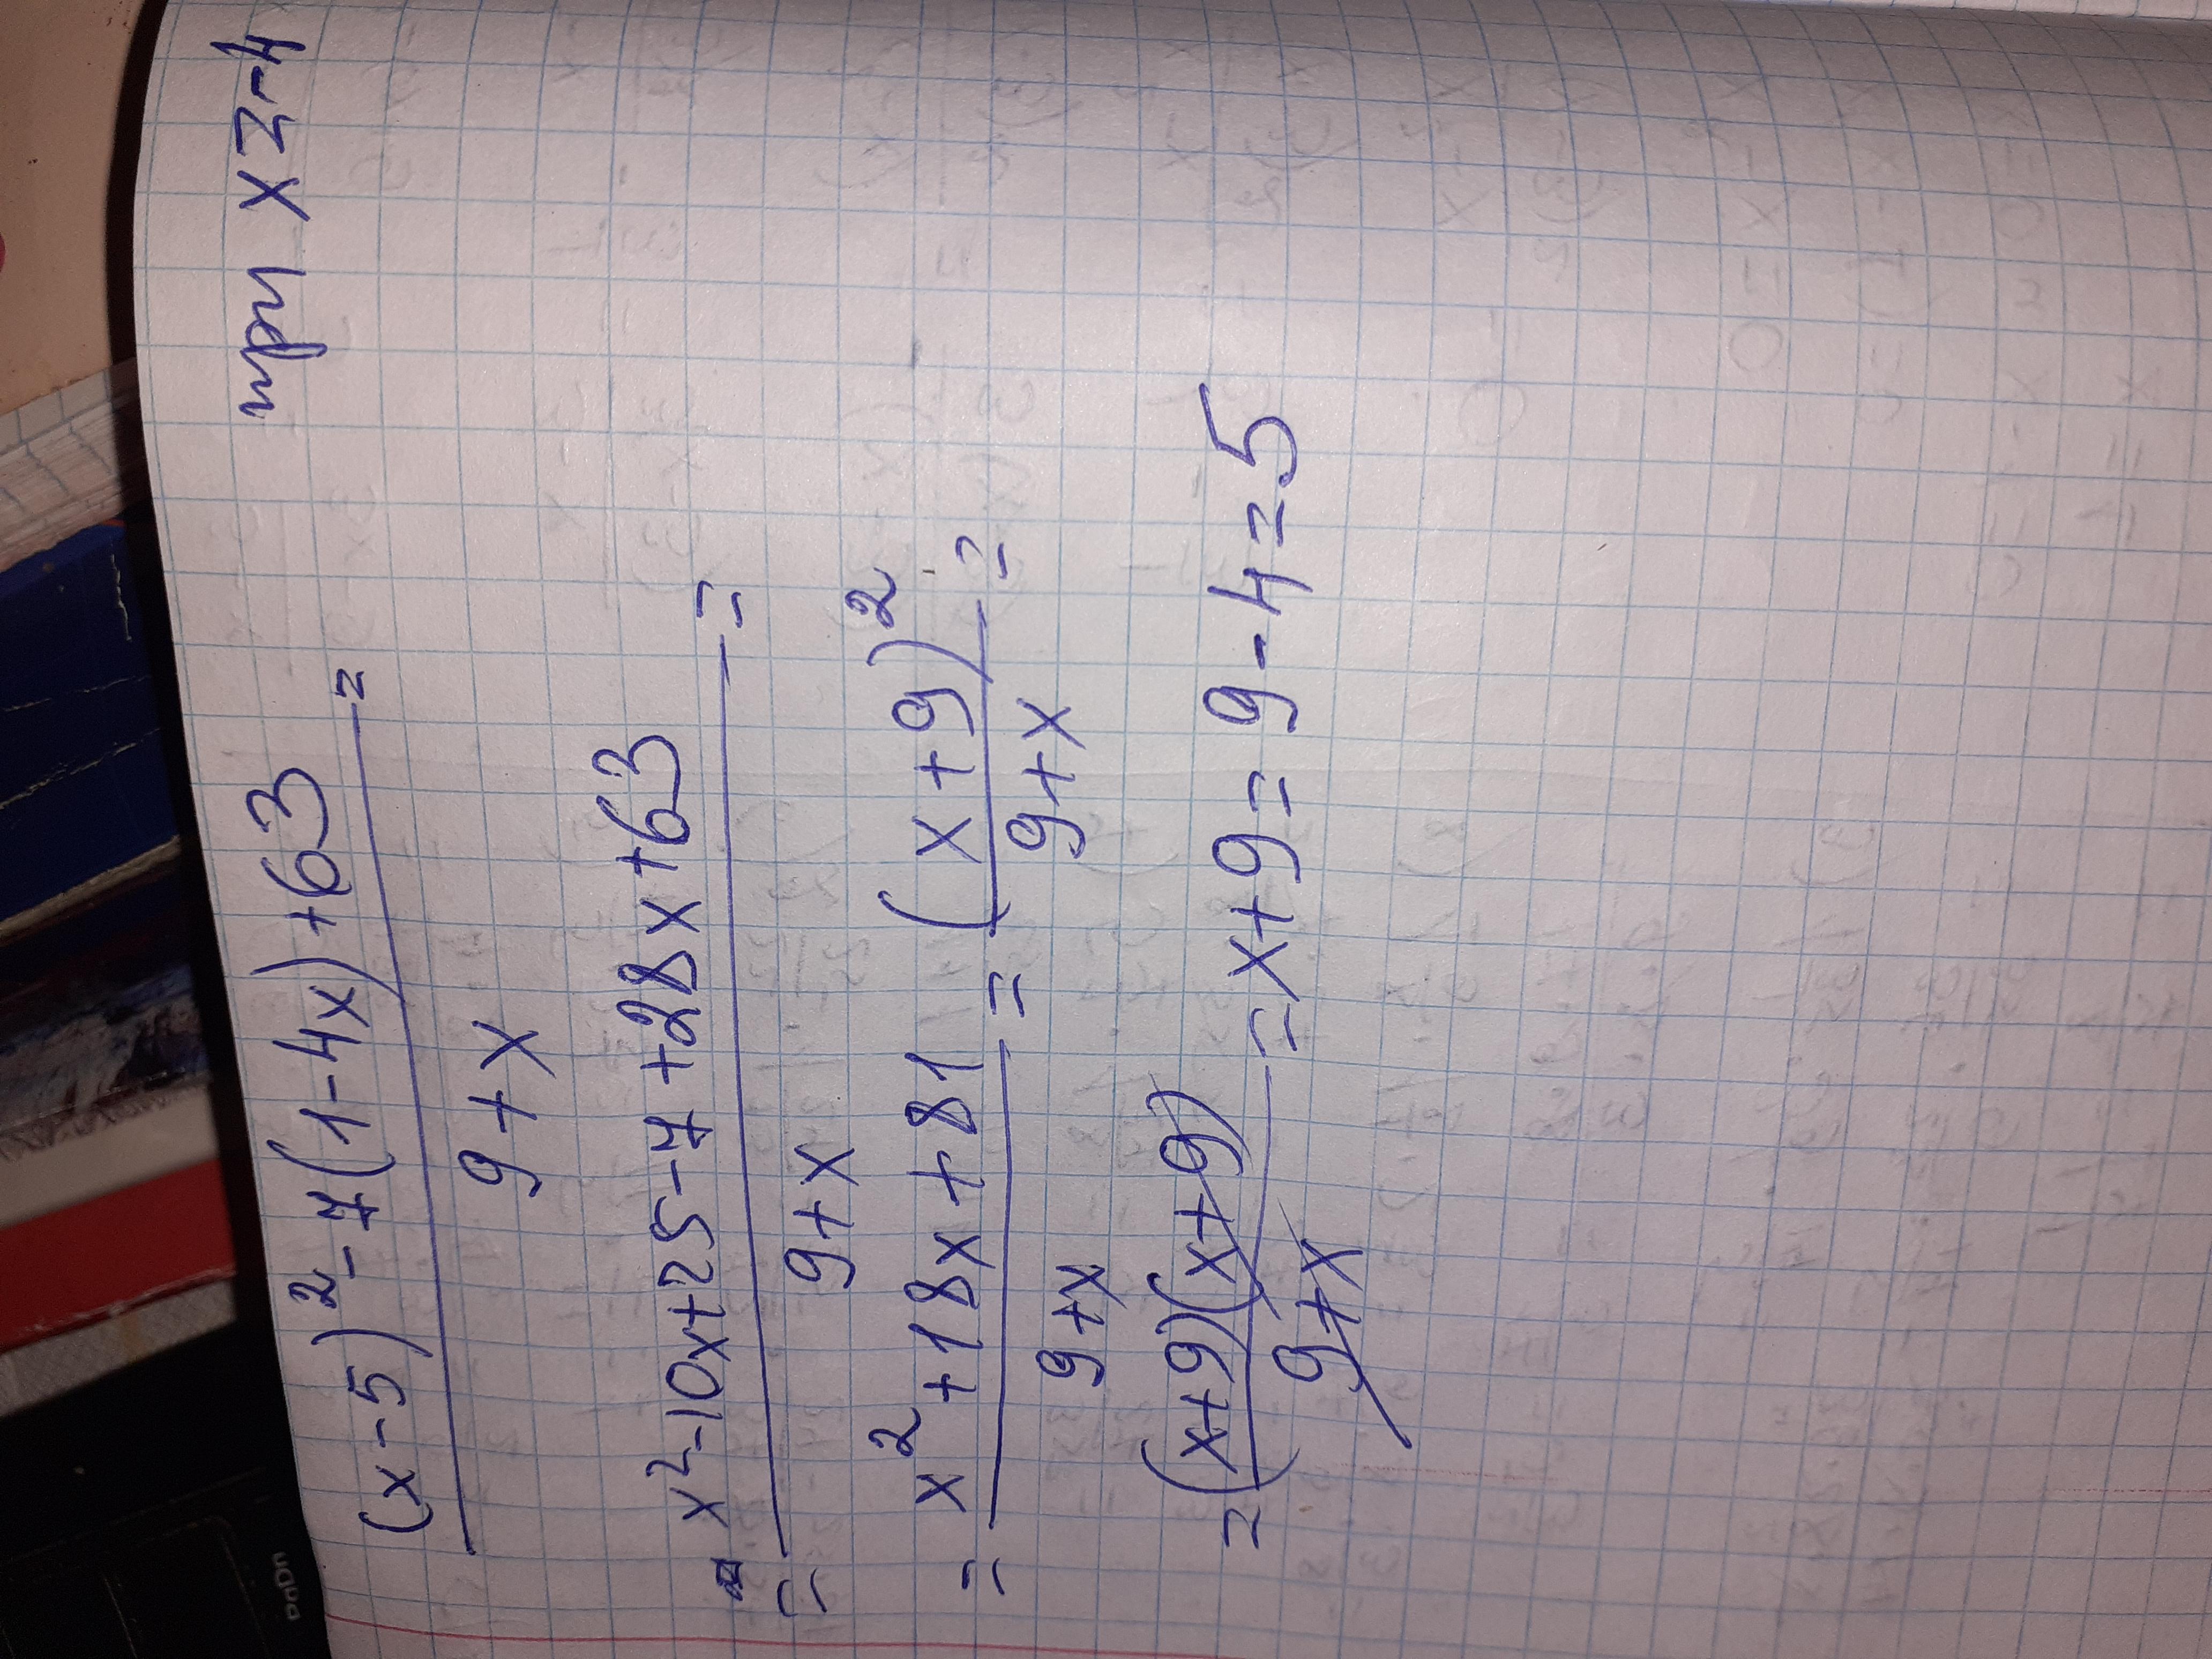 (x-5)²-7(1-4x)+63 = при x=-4
9+x
= x²-10x+25-7+28x+63 =
9+x
= x²+18x+81 = (x+9)² =
9+x 9+x
= (x+9)(x+9) = x+9 = 9-4=5
9+x
PgDn